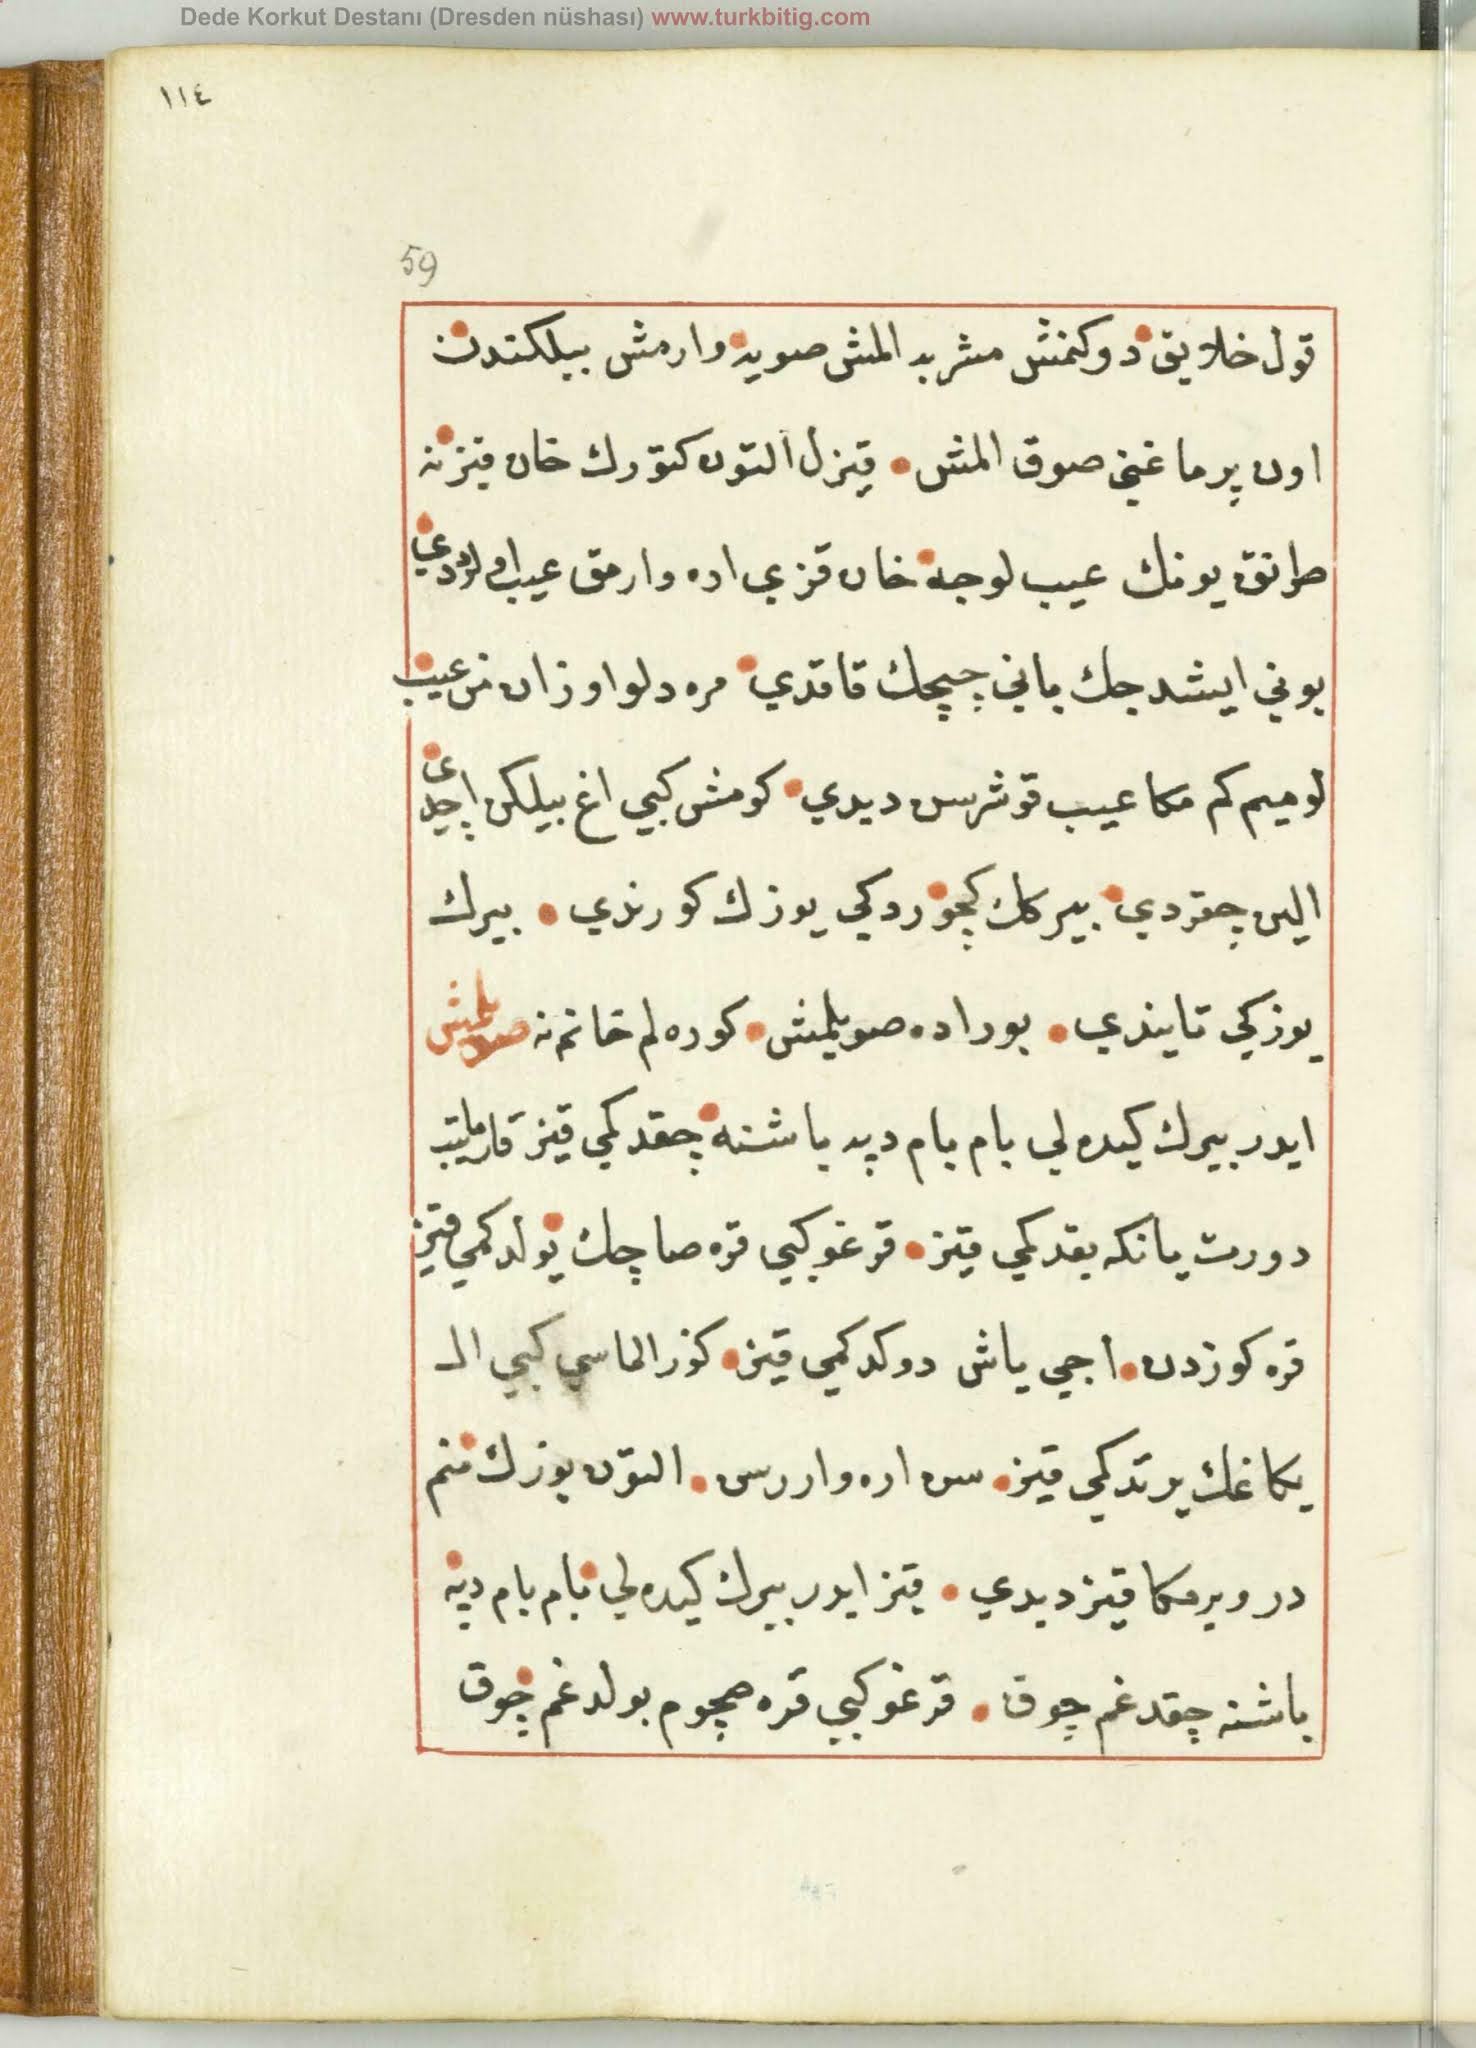 Dede Korkut Destanı (Dresden nüshası) www.turkbitig.com
١١٤
59
قول خلايق دوكنمش مشربه المش صويه وارمش بيلكندن
اون پرماغني صوق المش قيزل التون كتورك خان قيزنه
طرانق يونك عيب لوجه خان قزي اده وارمق عيب اولور ديدي
بوني ايشدجك باني چيچك قاقدي مره دلو اوزان من عيب
لوميم كم مكا عيب قوشرسن ديدي كومش كبي اغ بيلكن اچدي
الين چقردي بيرك كچوردكي يوزك كورندي بيرك
يوزكي تانيدي بوراده صويلمش كوره لم خانم نه صويلمش
ايدر بيرك كيده لي بام بام دپه باشنه چقدكمي قيز قارماينب
دورت يانكه بقدكمي قيز قرغو كبي قره صاچك يولدكمي قيز
قره كوزدن اجي ياش دوكدكمي قيز كوز الماسي كبي ال
يكاغك يرتدكمي قيز سن اره واررسن التون يوزك منم
در وير مكا قيز ديدي قيز ايدر بيرك كيده لي بام بام دپه
باشنه چقدغم چوق قرغو كبي قره صچوم يولدغم چوق